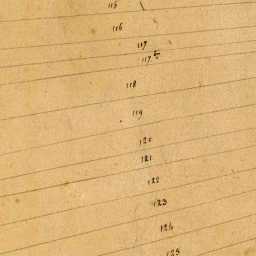 115
116
117
117
118
119
120
121
122
123
124
125